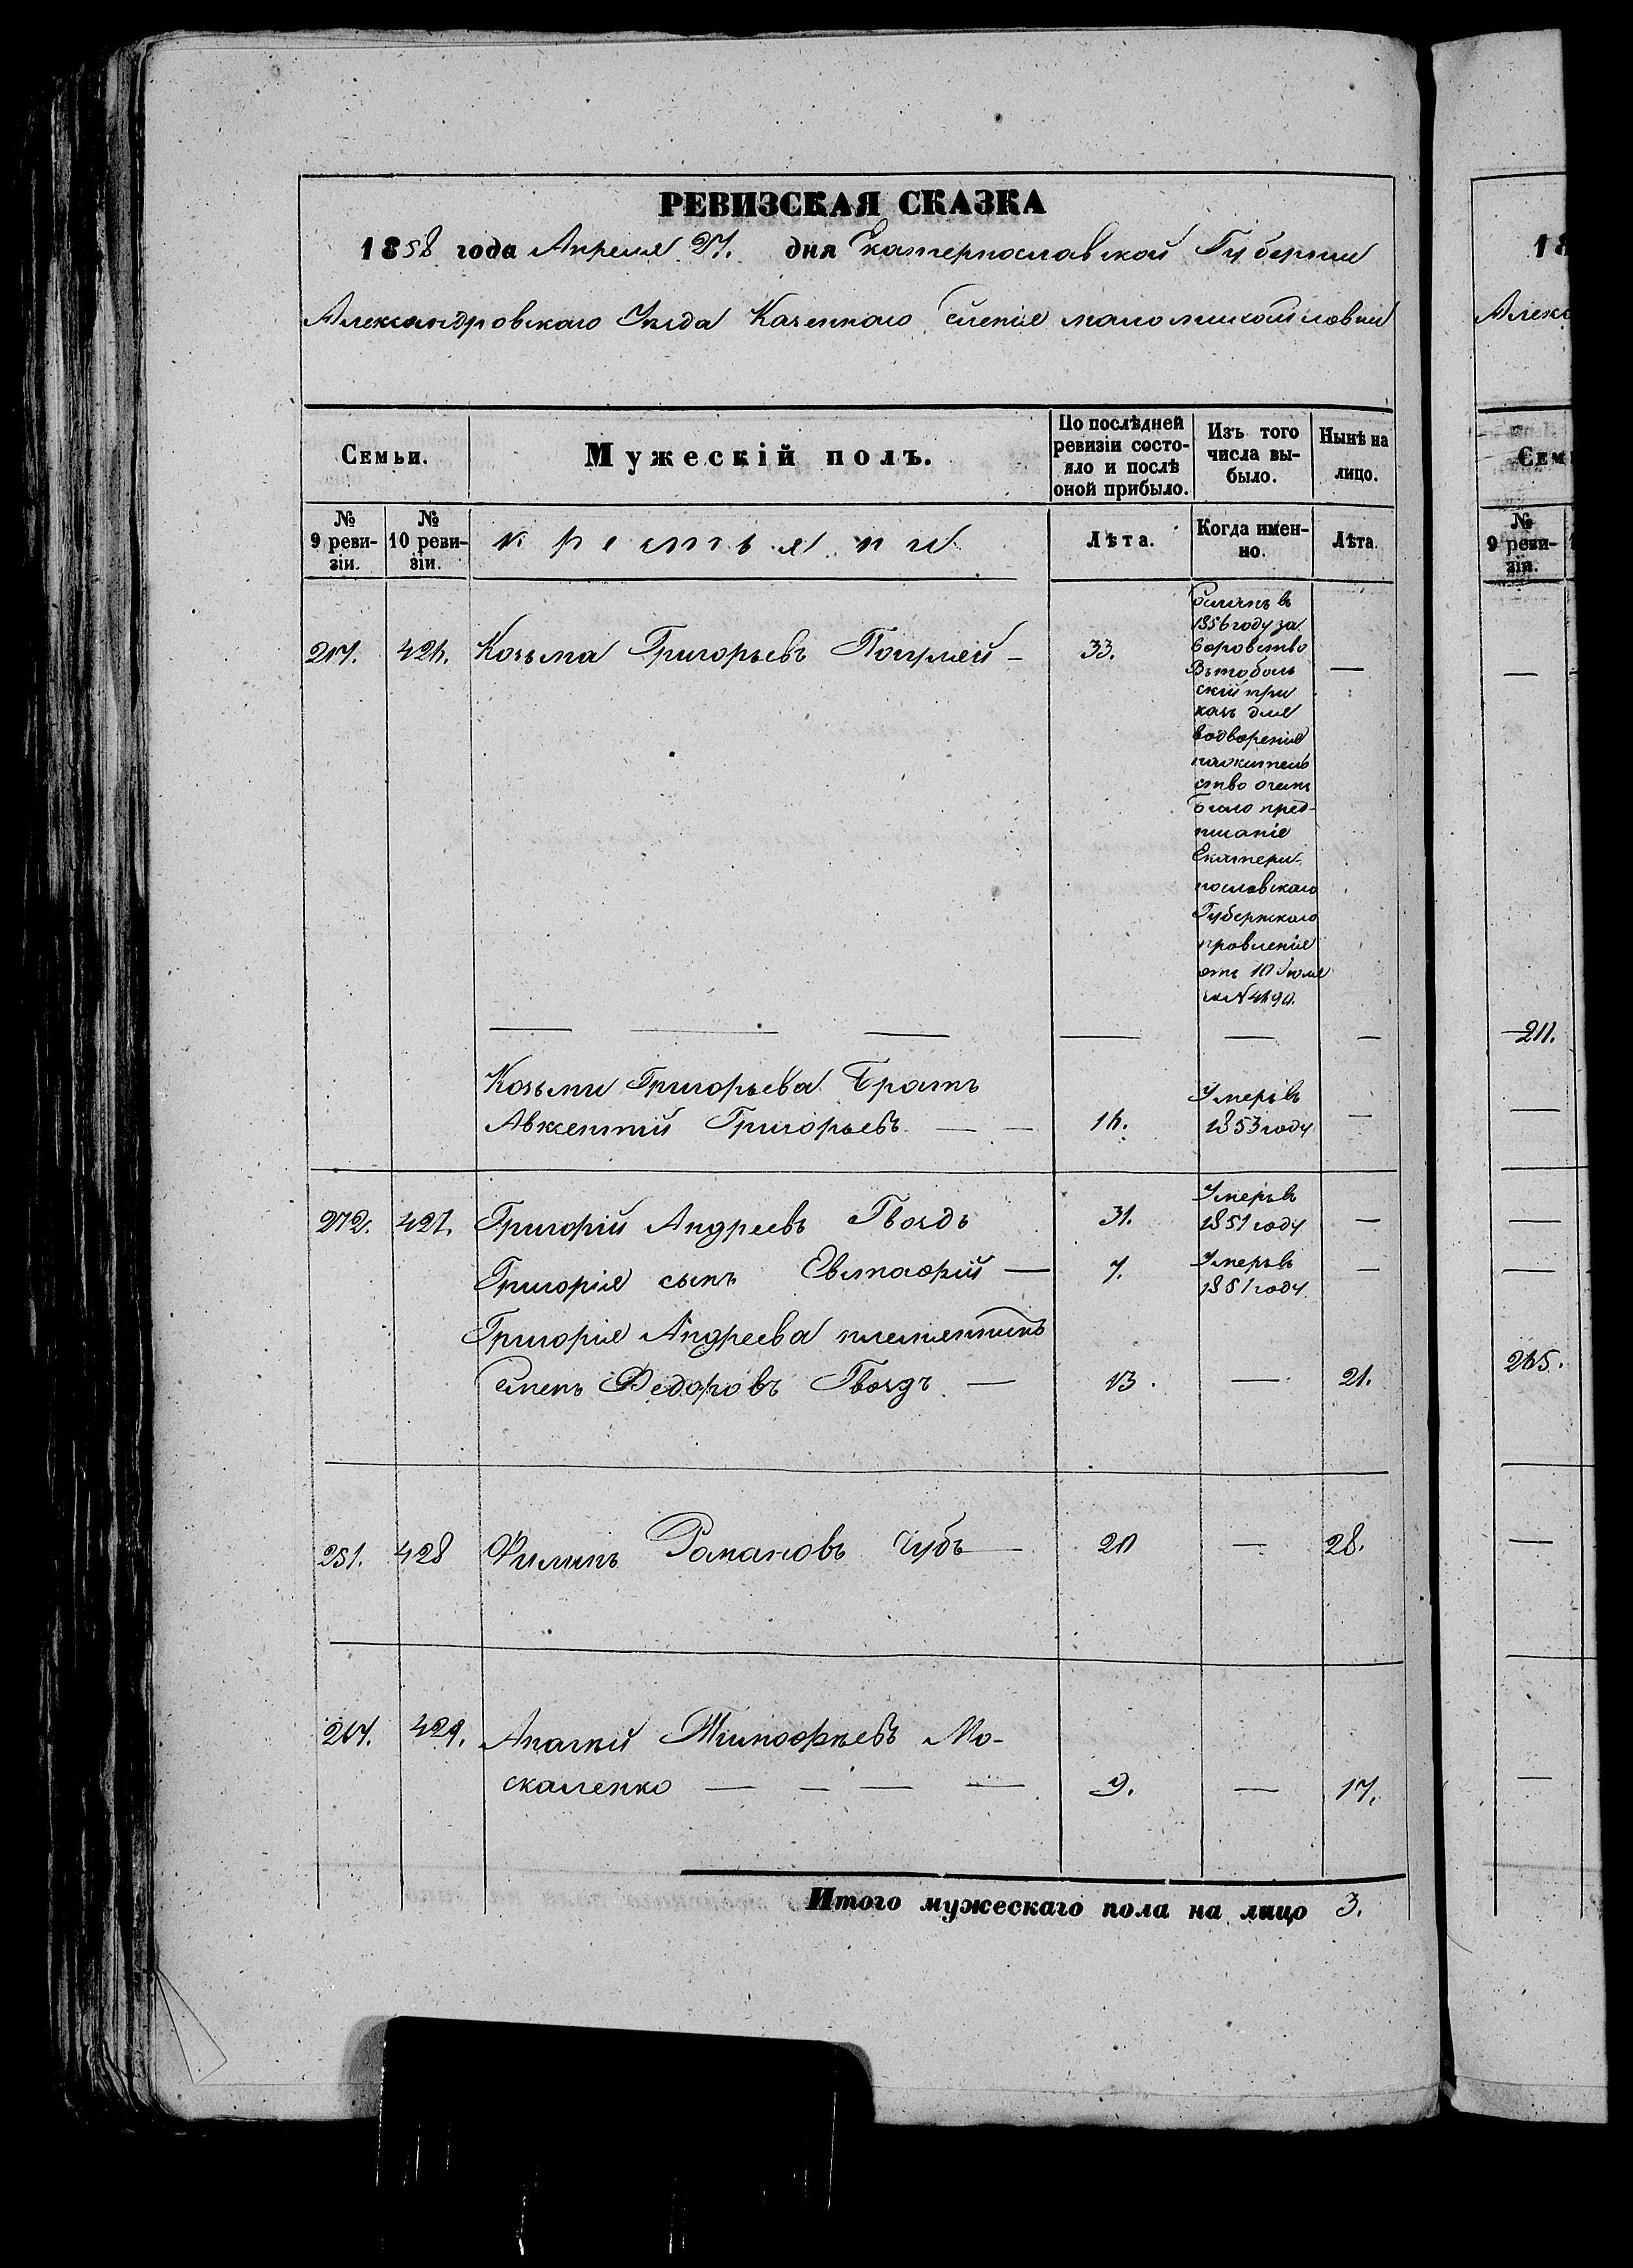 РЕВИЗСКАЯ СКАЗКА
1858 года Апреля 27. дня Екатеринославской Губернии
Александровскаго Уѣзда Казеннаго селенія маломихайловки
Семьи.
Мужескій полъ.
По послѣдней ревизіи состо-
яло и послѣ
оной прибыло.
Изъ того
числа вы-
было.
Нынѣ на
лицо.
№
9 реви-
зіи.
№
10 реви-
зіи.
крестьяни
Лѣта.
Когда имен-
но.
Лѣта.
217. 426. Козьма Григорьевъ 33.
Сосланъ въ
1856 году за
воровство
Въ тоболь
скій при
казъ для
водворенія
на жительство о чемъ
было пред-
писаніе
Екатери
нославскаго
Губернскаго
провленія
отъ 10 Іюля
за №4690.
Козьми Григорьева Братъ
Авксентій Григорьевъ 16. Умеръ въ
1853 году
272. 427. Григорій Андреевъ Гвоздь 31. Умеръ въ
1851 году
Григорія сынъ Евстафій 7. Умеръ въ
1851 году
Григорія Андреева племянникъ
Семенъ Федоровъ Гвоздь 13. 21.
251. 428 Филипъ Романовъ Чубъ 20 28.
429. Ананій Тимофѣевъ Мо-
скаленко 9. 17.
Итого мужескаго пола на лицо 3.
18
Алекс
Сем
№
9 реви-
зіи.
211.
265.